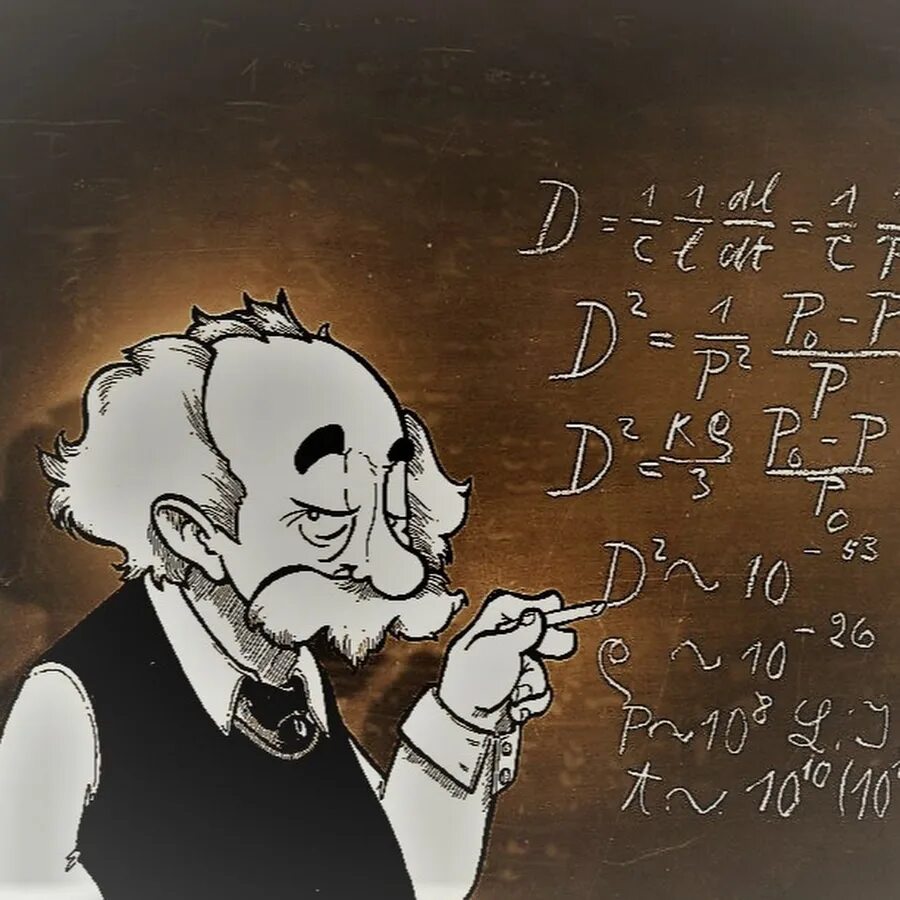 D = 1/c 1/l dl/dt = 1/c 1/P
D² = 1/P² P₀-P/P
D² = κρ/3 P₀-P/P₀
D² ~ 10⁻⁵³
ρ ~ 10⁻²⁶
P ~ 10⁸ L.J
t ~ 10¹⁰ (10